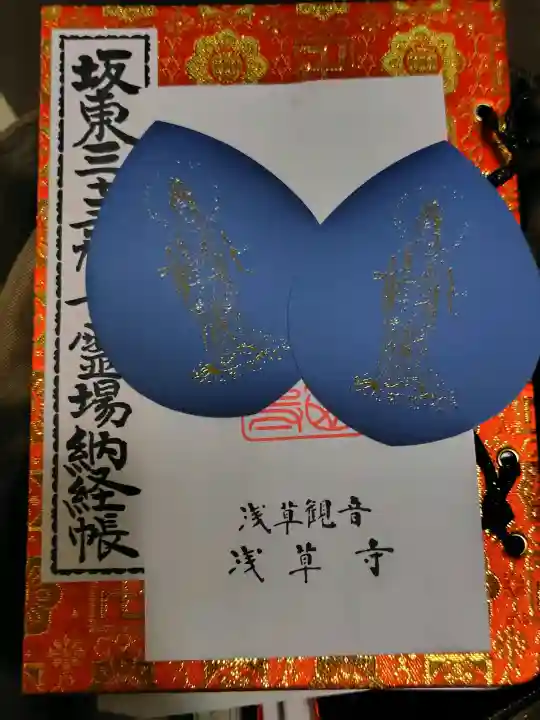 坂東三十三所霊場納経帳
浅草観音
浅草寺